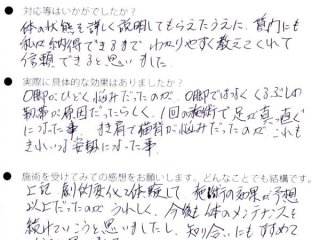 ● 対応等はいかがでしたか？
体の状態を詳しく説明してもらえたうえに、質問にも
私が納得できるまでわかりやすく教えてくれて
信頼できると思いました。
● 実際に具体的な効果はありましたか？
O脚がひどく悩みだったのが、O脚ではなくくるぶしの
が原因だったらしく、1回の施術で足が真っ直ぐ
になった事 肩で猫背が悩みだったのがこれも
きれいな姿勢になった事
● 施術を受けてみての感想をお願いします。どんなことでも結構です。
上記、劇的変化を体験して 施術の効果が予想
以上だったのがうれしく、今後も体のメンテナンスを
続けていこうと思いましたし、知り合いにもすすめて